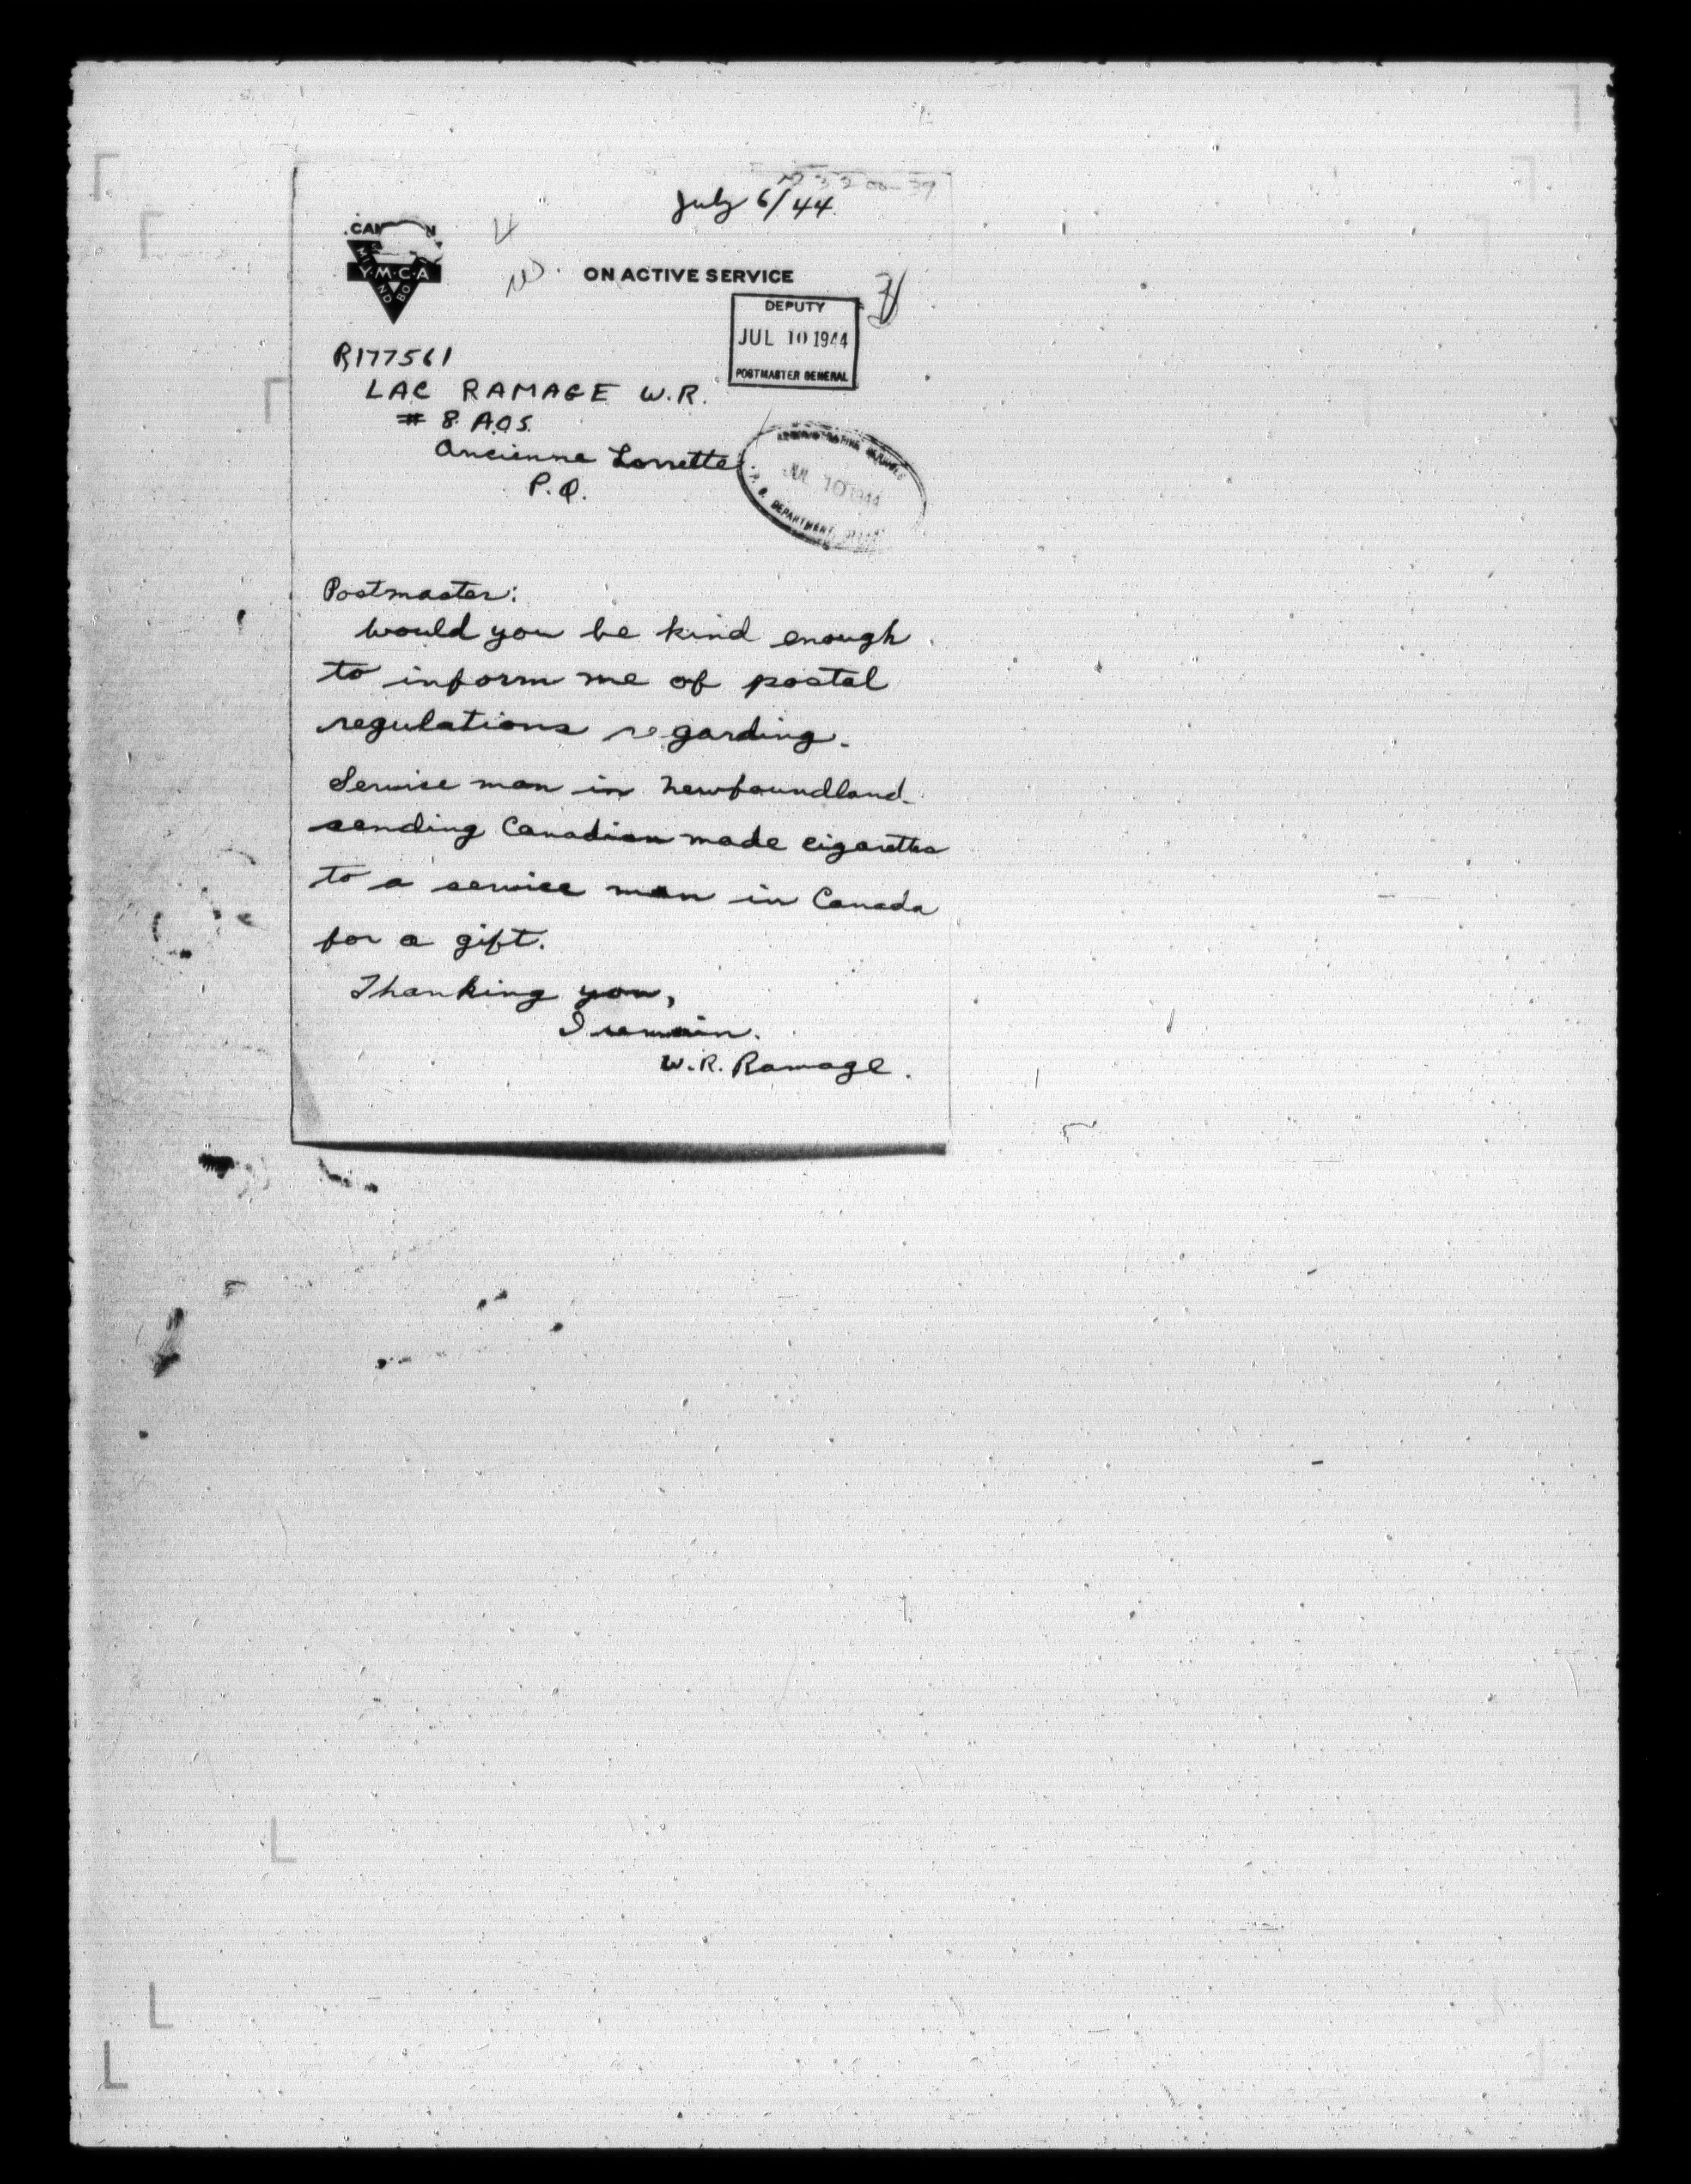 July 6/44.
Y·M·C·A
ON ACTIVE SERVICE
DEPUTY
JUL 10 1944
POSTMASTER GENERAL
R177561
LAC RAMAGE W.R.
# 8. A.O.S.
Ancienne Lorrette
P.Q.
JUL 10 1944
DEPARTMENT
Postmaster:
Would you be kind enough
to inform me of postal
regulations regarding.
Service man in Newfoundland
sending Canadian made cigarettes
to a service man in Canada
for a gift.
Thanking you,
I remain.
W.R. Ramage.